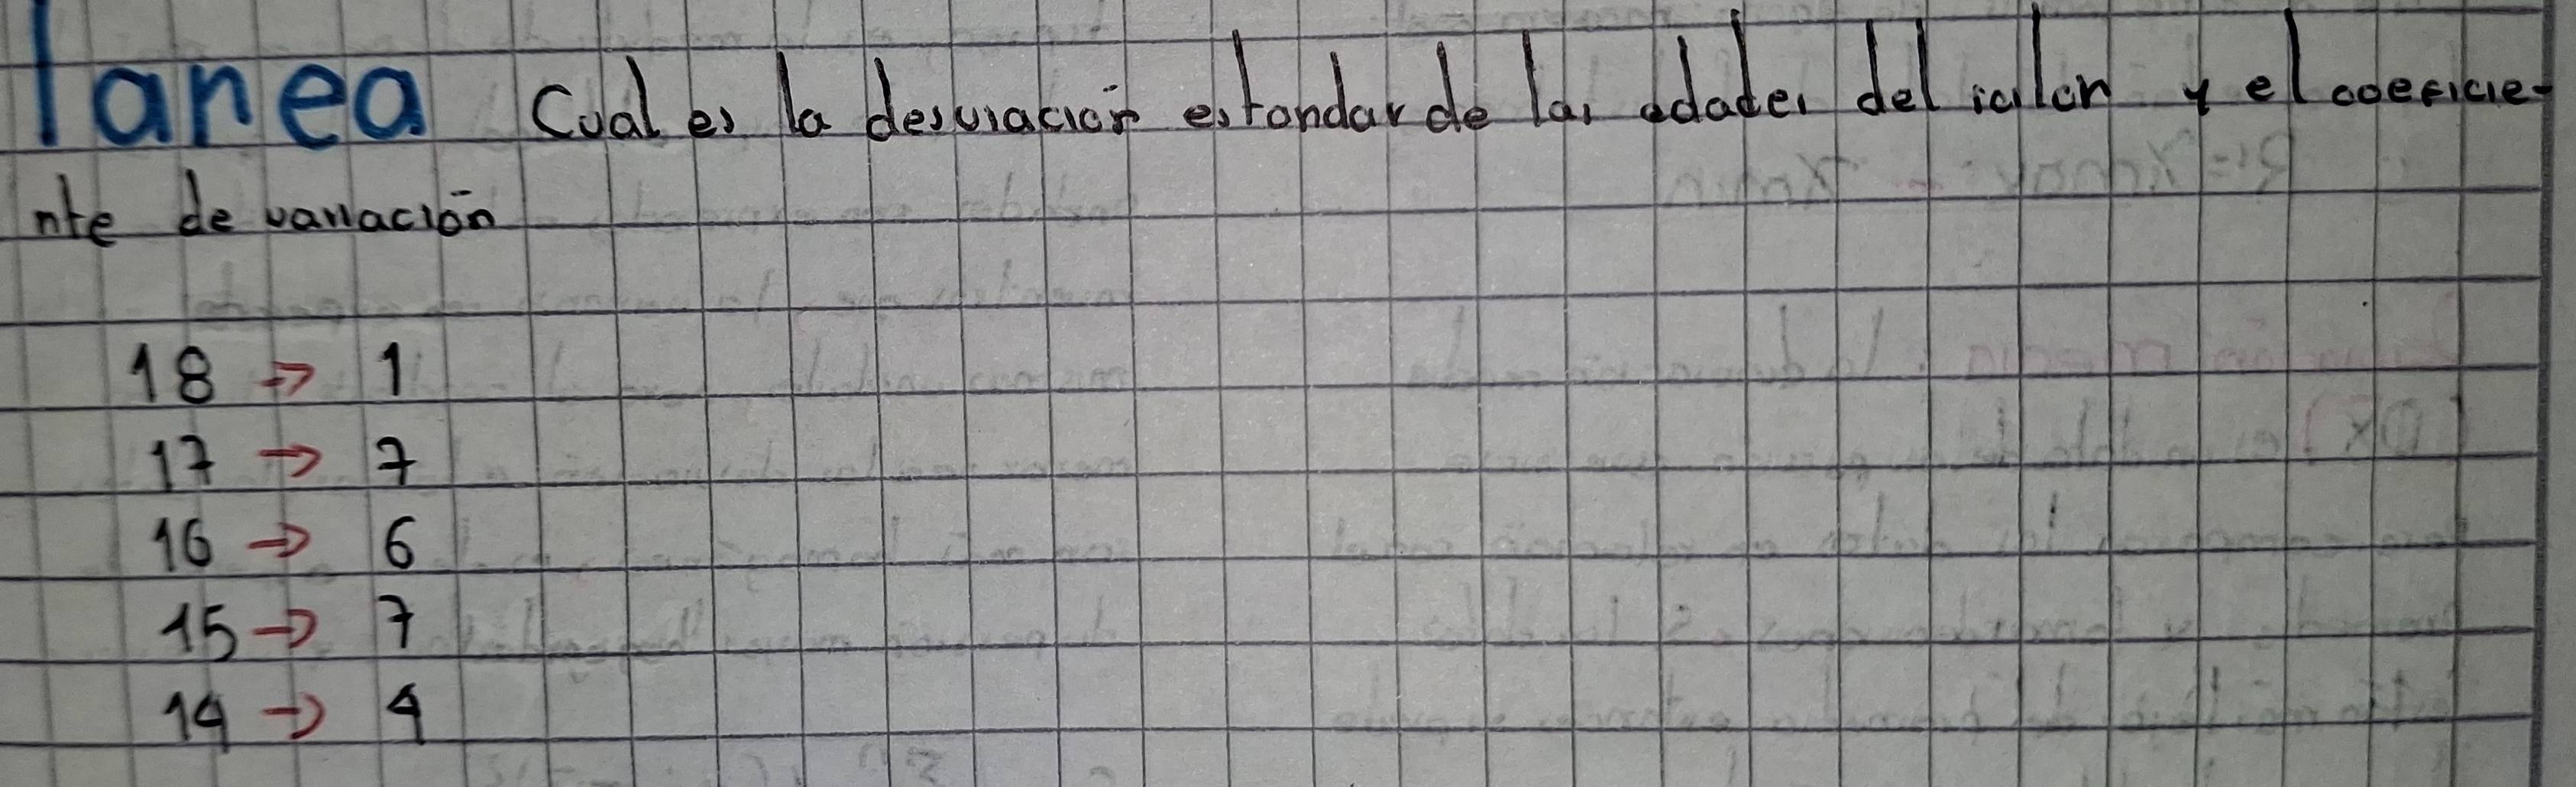 Tarea Cual es la desviación estandar de las edades del salon y el coeficie-
nte de variación
18 → 1
17 → 7
16 → 6
15 → 7
14 → 4